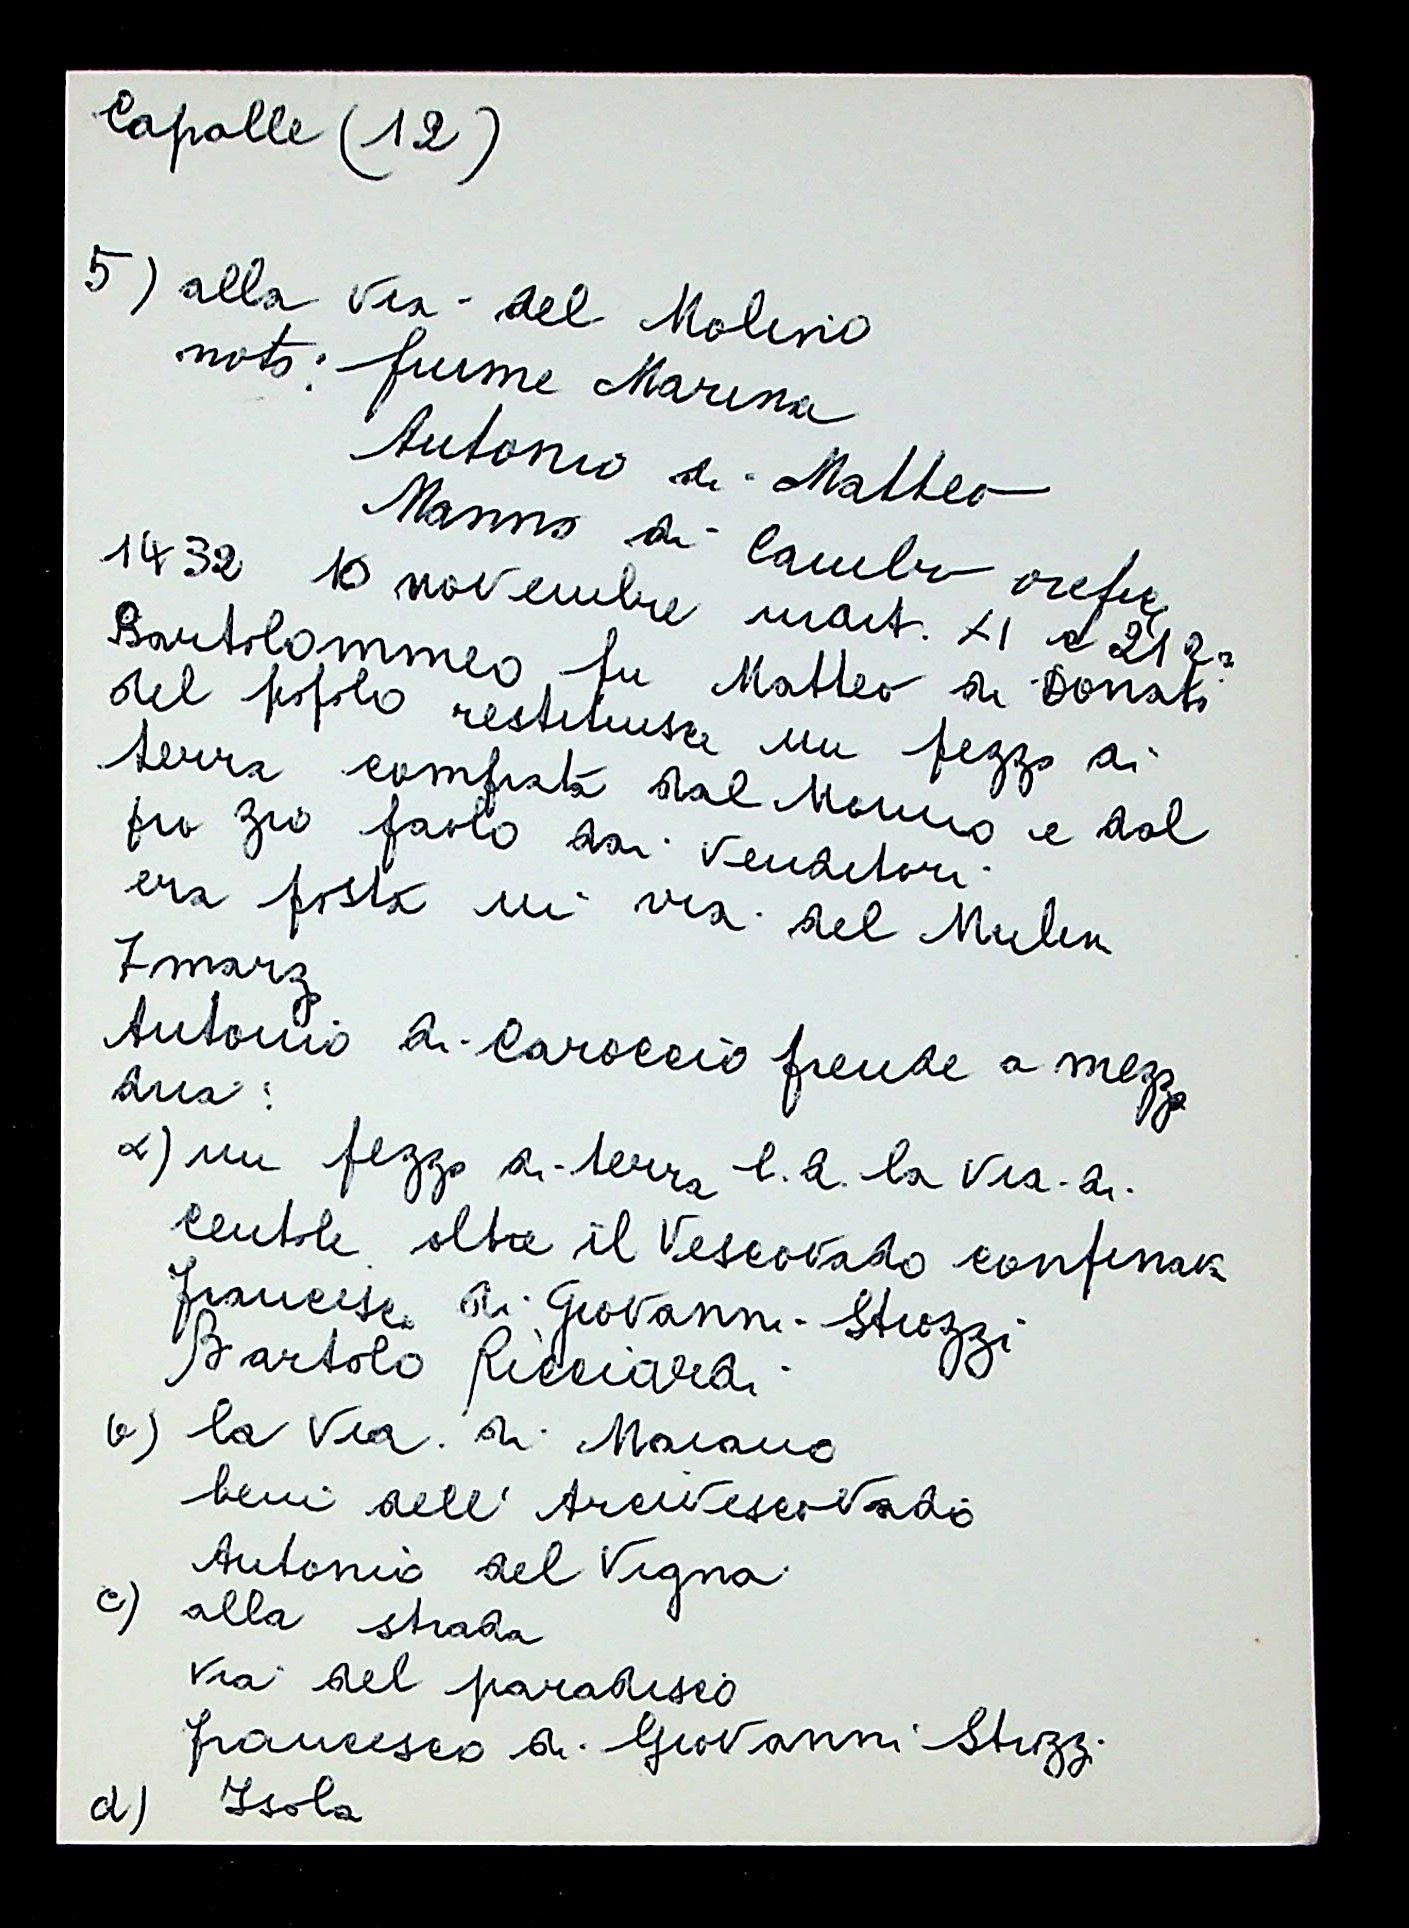 Capalle (12)
5) alla via del Molino
noto: fiume Marina
Antonio di Matteo
Manno di Cambio orefice
1432 10 novembre indict. XI c 212
Bartolommeo fu Matteo di Donato
del popolo restituisce un pezzo di
terra comprata dal Nonno e dal
pro zio paolo dai venditori
era posta in via del Mulin
7 marzo
Antonio di Caroccio prende a mezza
dria:
a) un pezzo di terra l.d. la via di
centole oltre il Vescovado confinava
francesco di Giovanni Strozzi
Bartolo Ricciardi
b) la via di Maiano
beni dell' Arcivescovado
Antonio del Vigna
c) alla strada
via del paradiso
francesco di Giovanni Strozzi
d) Isola